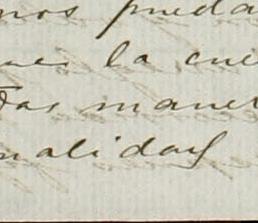 mos pueda
la cue
das maner
nalidad